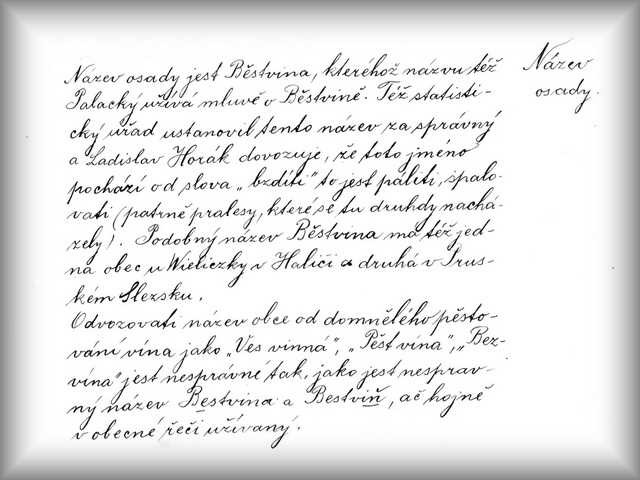 Název osady jest Běstvina, kteréhož názvu též
Palacký užívá mluvě o Běstvině. Též statisti-
cký úřad ustanovil tento název za správný
a Ladislav Horák dovozuje, že toto jméno
pochází od slova „bzdíti" to jest páliti, spalo-
vati (patrně pralesy, které se tu druhdy nachá-
zely). Podobný název Běstvina má též jed-
na obec u Wieliczky v Haliči a druhá v Prus-
kém Slezsku.
Odvozovati název obce od domnělého pěsto-
vání vína jako „Ves vinná", „Pěst vína", „Bez-
vína" jest nesprávné tak, jako jest nespráv-
ný název Bestvina a Bestviň, ač hojně
v obecné řeči užívaný.
Název
osady.